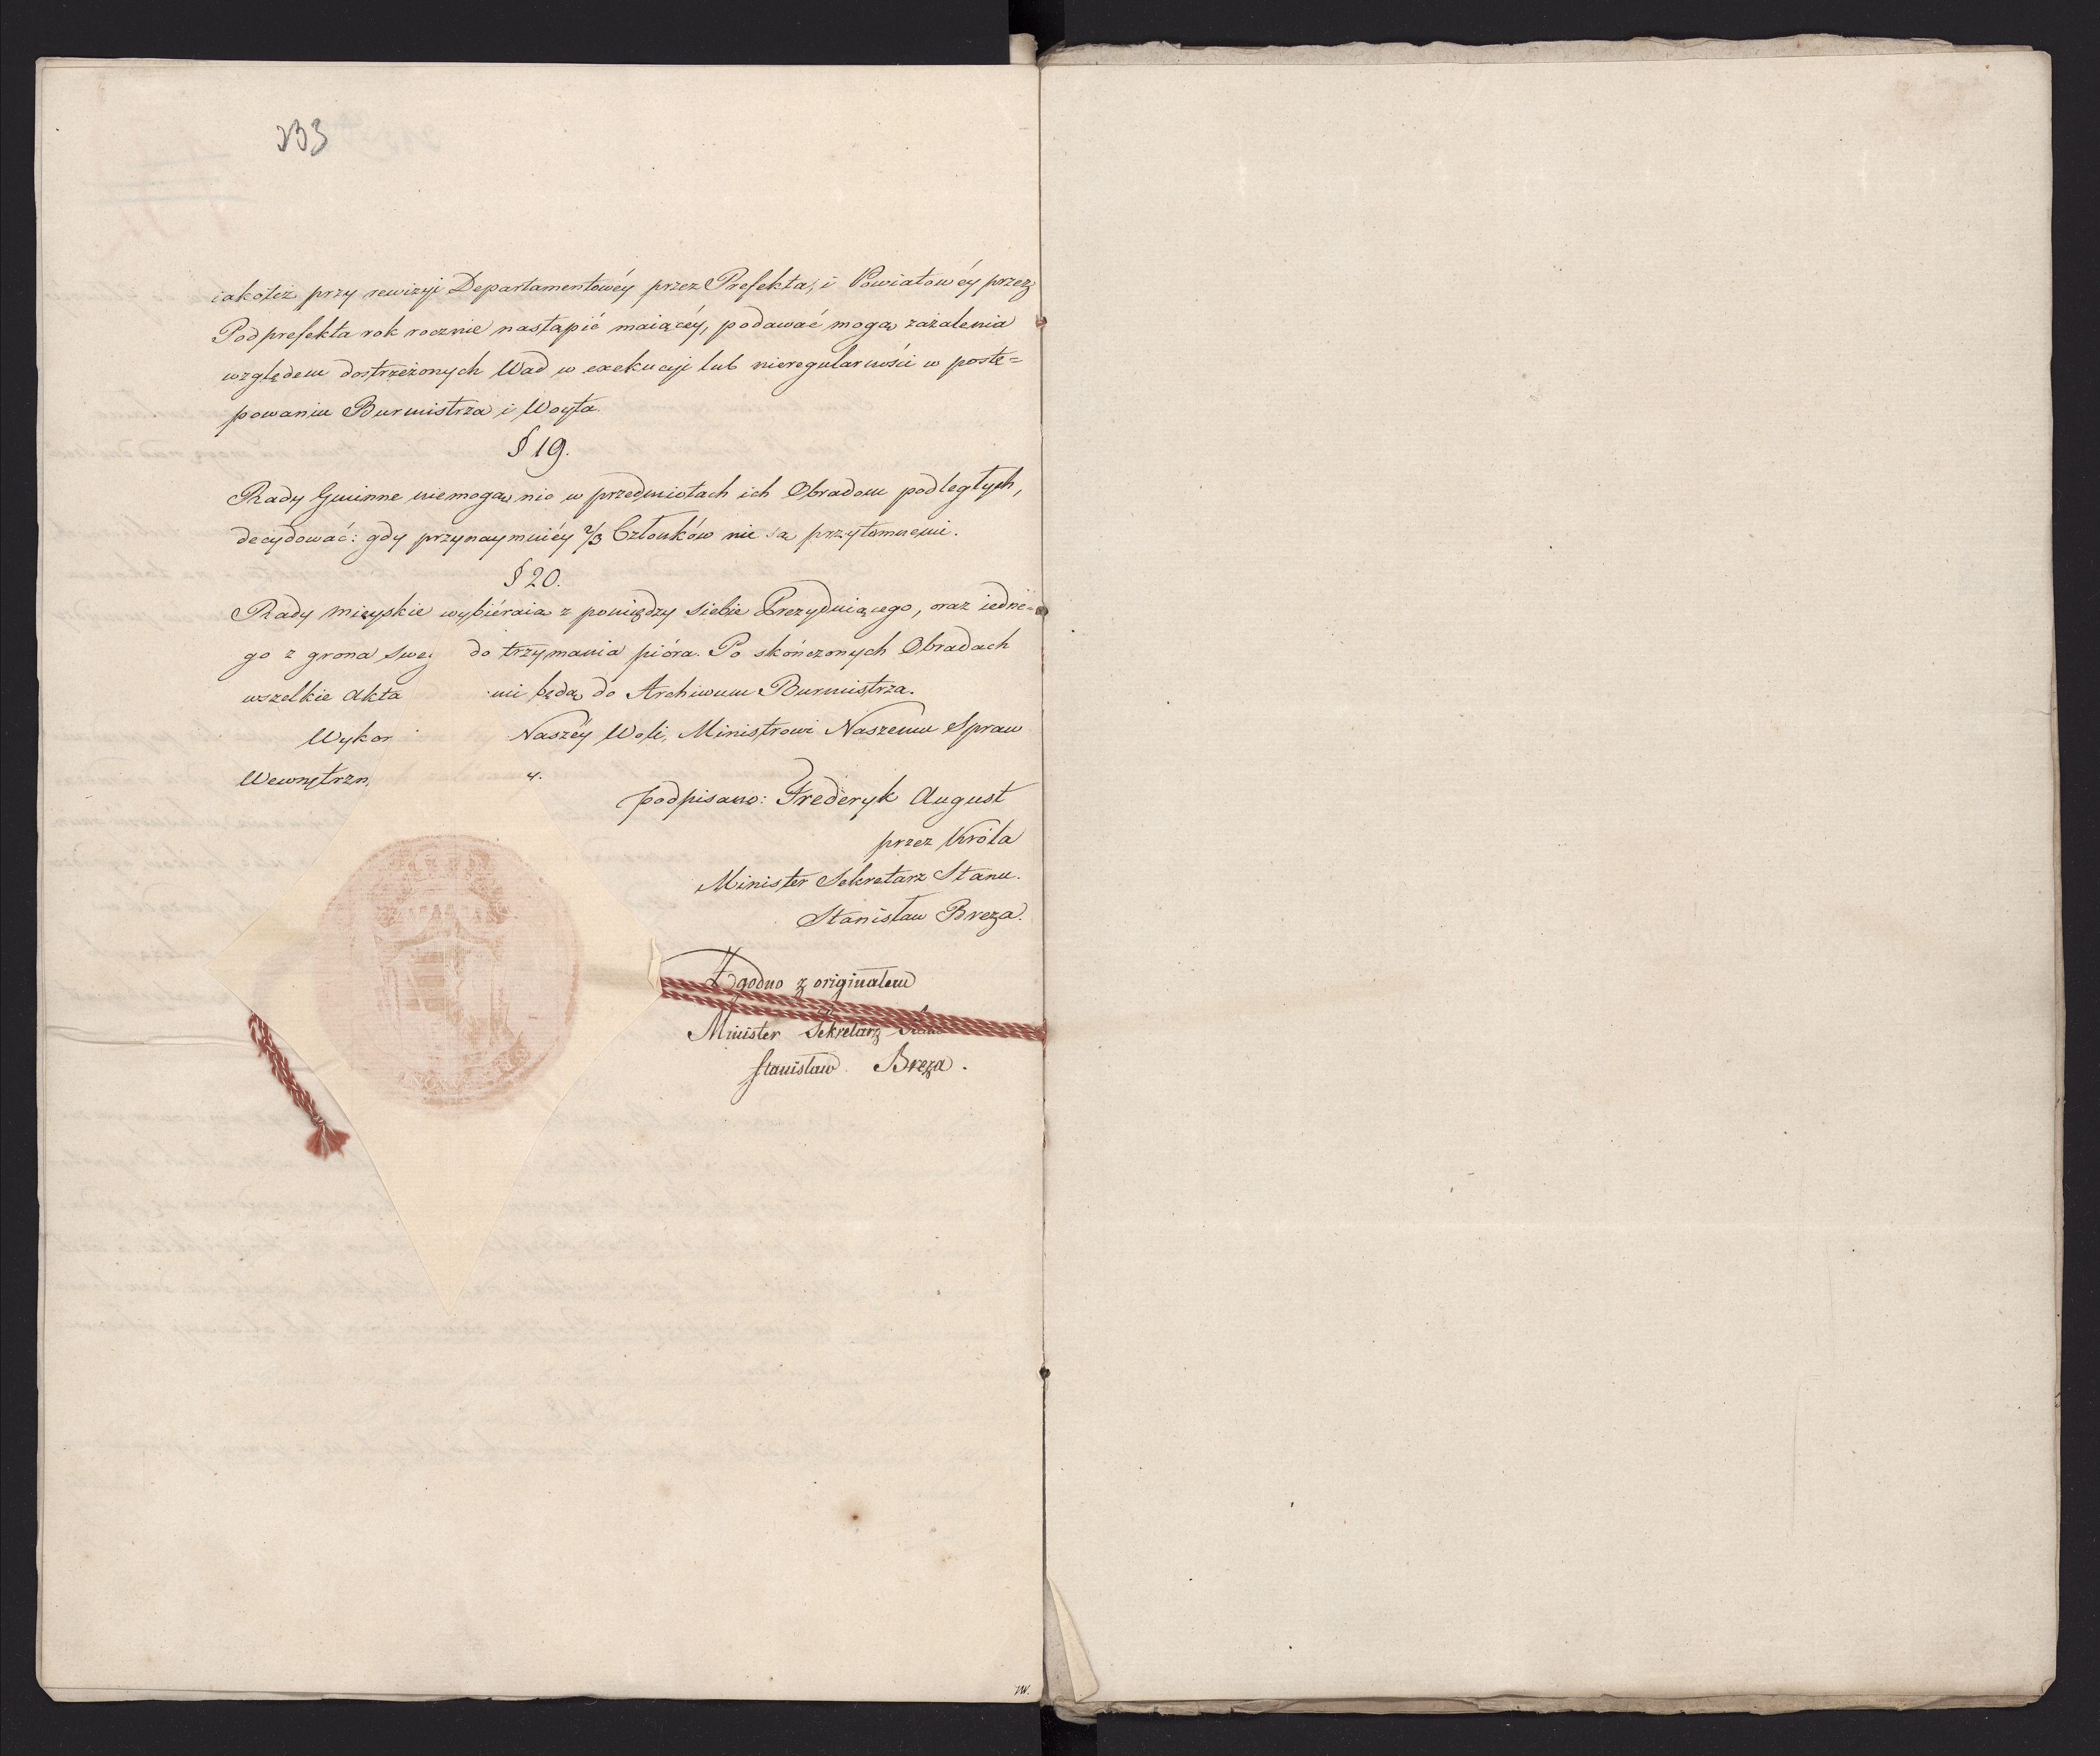 233
iakotéż przy rewizyi Departamentowéy przez Prefekta, i Powiatowéy przez
Podprefekta rok rocznie nastąpić maiącéy, podawać mogą zażalenia
względem dostrzeżonych Wad w exekucyi lub nieregularności w postę=
powaniu Burmistrza i Woyta.
§ 19.
Rady Gminne niemogą nic w przedmiotach ich Obradom podległych,
decydować: gdy przynaymniéy 2/3 Członków nie są przytomnemi.
§ 20.
Rady mieyskie wybiéraią z pomiędzy siebie Prezyduiącego, oraz iedne=
go z grona sweg do trzymania pióra. Po skończonych Obradach
wszelkie Akta mi będą do Archiwum Burmistrza.
Wykon Naszéy Woli, Ministrowi Naszemu Spraw
Wewnętrzn y.
podpisano: Frederyk August
przez Króla
Minister Sekretarz Stanu.
Stanisław Breza.
Zgodno z originałem
Minister Sekretarz Stanu
Stanisław Breza.